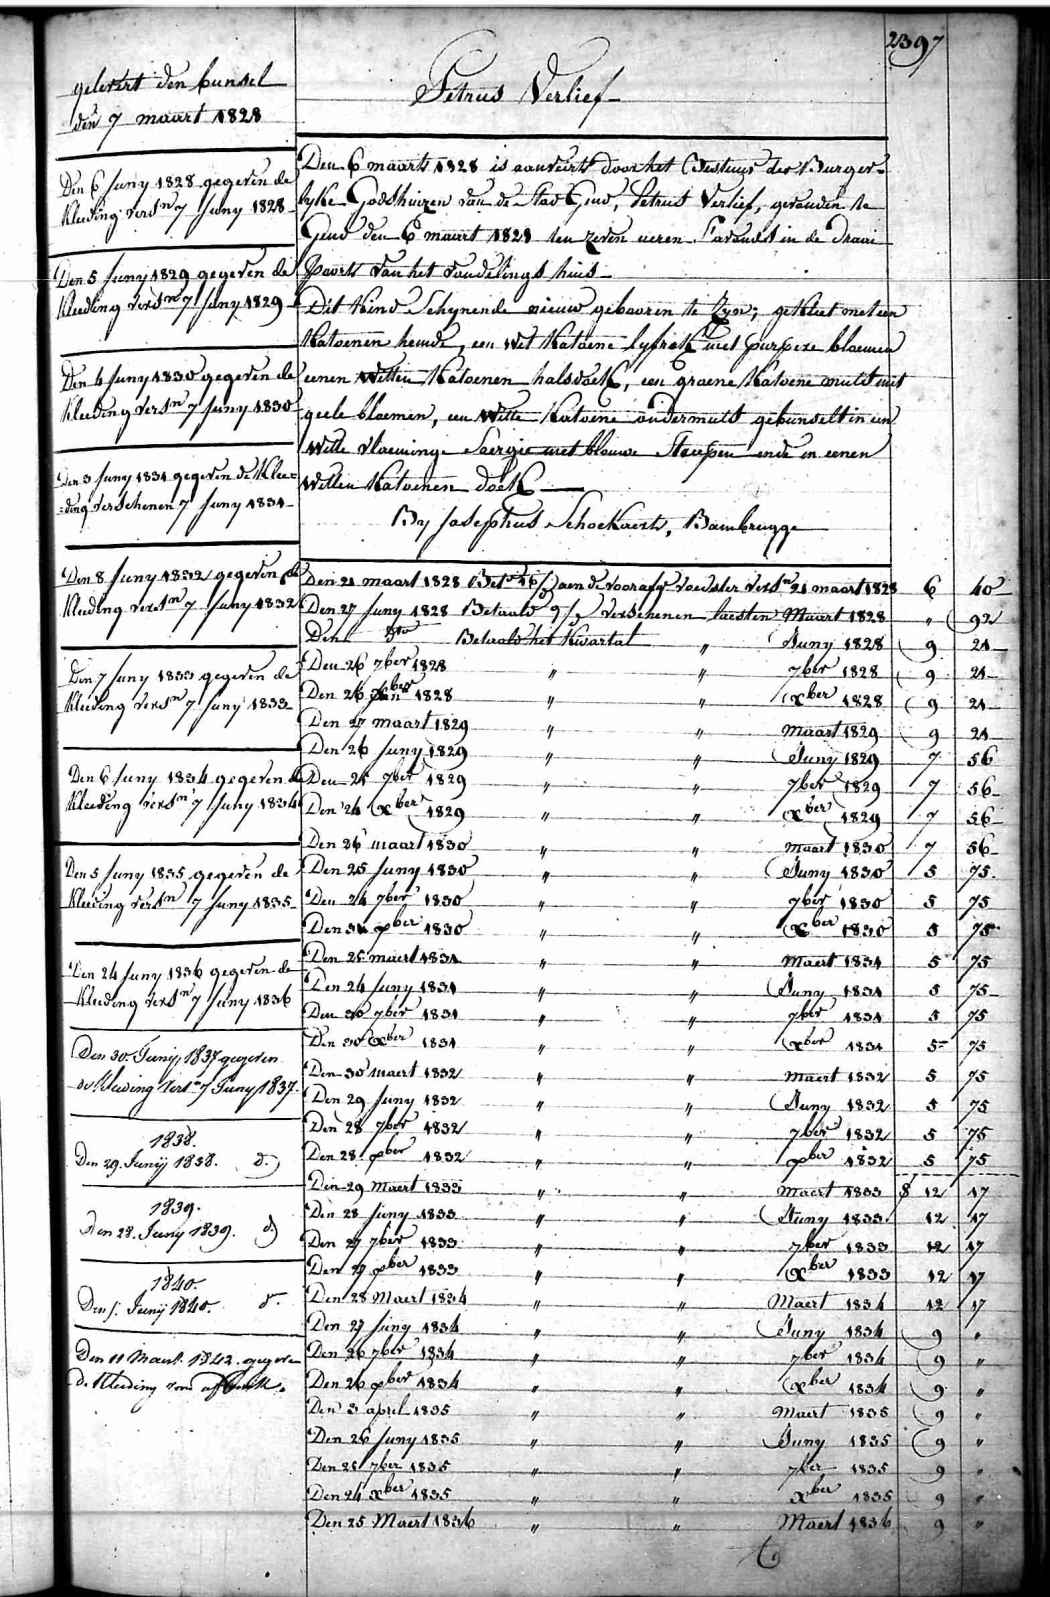 2397
Petrus Verlief
gelevert den bunsel
den 7 maart 1828
Den 6 Juny 1828 gegeven de
kleeding versn 7 Juny 1828
Den 5 Juny 1829 gegeven de
kleeding versn 7 Juny 1829
Den 4 Juny 1830 gegeven de
kleeding versn 7 Juny 1830
Den 3 Juny 1831 gegeven de klee=
=ding verschenen 7 Juny 1831
Den 8 Juny 1832 gegeven de
kleeding versn 7 Juny 1832
Den 7 Juny 1833 gegeven de
kleeding versn 7 Juny 1833
Den 6 Juny 1834 gegeven de
kleeding versn 7 Juny 1834
Den 5 Juny 1835 gegeven de
kleeding versn 7 Juny 1835
Den 24 Juny 1836 gegeven de
kleeding versn 7 Juny 1836
Den 30 Junij 1837 gegeven
de kleeding versn 7 Juny 1837.
1838.
Den 29. Junij 1838. d.
1839.
Den 28. Juny 1839. d.
1840.
Den Junij 1840. d.
Den 11 Maert. 1842. gegeven
de kleeding
Den 6 maart 1828 is aanveirt door het Bestuur der Burger=
lyke Godshuizen van de Stad Gend, Petrus Verlief, gevonden te
Gend den 6 maart 1828 ten zeven ueren s'avonds in de Draai
Poorte van het vondelings huis
Dit Kind Schynende nieuw gebooren te Zyn; gekleet met een
Katoenen hemde, een wit Katoene lyfrok met purpere bloemen
eenen Witten Katoenen halsdoek, een groene Katoene muts met
geele bloemen, een Witte Katoene ondermuts gebunselt in een
Witte vloeminge Saergie met blauwe Streepen ende in eenen
Witten Katoenen doek
By Josephus Schockaert, Bambrugge
Den 21 maart 1828 aen de voorafg voedster versn 21 maart 1828 6 40
Den 27 Juny 1828 Betaald verschenen laesten Maart 1828 " 92
Den dto Betaald het Kwartal " Juny 1828 9 21
Den 26 7ber 1828 " " 7ber 1828 9 21
Den 26 xber 1828 " " xber 1828 9 21
Den 27 maart 1829 " " maart 1829 9 21
Den 26 Juny 1829 " " Juny 1829 7 56
Den 25 7ber 1829 " " 7ber 1829 7 56
Den 24 xber 1829 " " xber 1829 7 56
Den 26 maart 1830 " " maart 1830 7 56
Den 25 Juny 1830 " " Juny 1830 5 75
Den 24 7ber 1830 " " 7ber 1830 5 75
Den 31 xber 1830 " " xber 1830 5 75
Den 25 maert 1831 " " Maert 1831 5 75
Den 24 Juny 1831 " " Juny 1831 5 75
Den 30 7ber 1831 " " 7ber 1831 5 75
Den 30 xber 1831 " " xber 1831 5 75
Den 30 maert 1832 " " Maert 1832 5 75
Den 29 Juny 1832 " " Juny 1832 5 75
Den 28 7ber 1832 " " 7ber 1832 5 75
Den 28 xber 1832 " " xber 1832 5 75
Den 29 Maert 1833 " " Maert 1833 12 17
Den 28 Juny 1833 " " Juny 1833 12 17
Den 27 7ber 1833 " " 7ber 1833 12 17
Den 27 xber 1833 " " xber 1833 12 17
Den 28 Maert 1834 " " Maert 1834 12 17
Den 27 Juny 1834 " " Juny 1834 9 "
Den 26 7ber 1834 " " 7ber 1834 9 "
Den 26 xber 1834 " " xber 1834 9 "
Den 3 april 1835 " " Maert 1835 9 "
Den 26 Juny 1835 " " Juny 1835 9 "
Den 25 7ber 1835 " " 7ber 1835 9 "
Den 24 xber 1835 " " xber 1835 9 "
Den 25 Maert 1836 " " Maert 1836 9 "